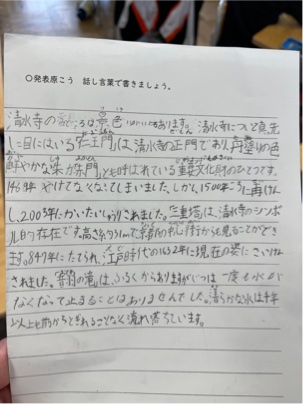 ○発表原こう　話し言葉で書きましょう。
清水寺の景色はあります。清水寺について真先
に目にはいる仁王門は清水寺の正門であり再塗りの色
鮮やかな朱から赤門とも呼ばれている重要文化財のひとつです。
1469年やけてなくなってしまいました。しかし1500年に再け
し、2003年にかいたいしゅうりされました。三重塔は、清水寺のシンボ
ル的存在です。高さ約31mで京都の街からも見ることができ
ます。847年にたてられ、江戸時代の1632年に現在の姿にさいけん
されました。音羽の滝は、ふるくからありますがじつは一度も水が
なくなって止まることはありませんでした。清らかな水は千年
以上も前からとぎれることなく流れ落ちています。